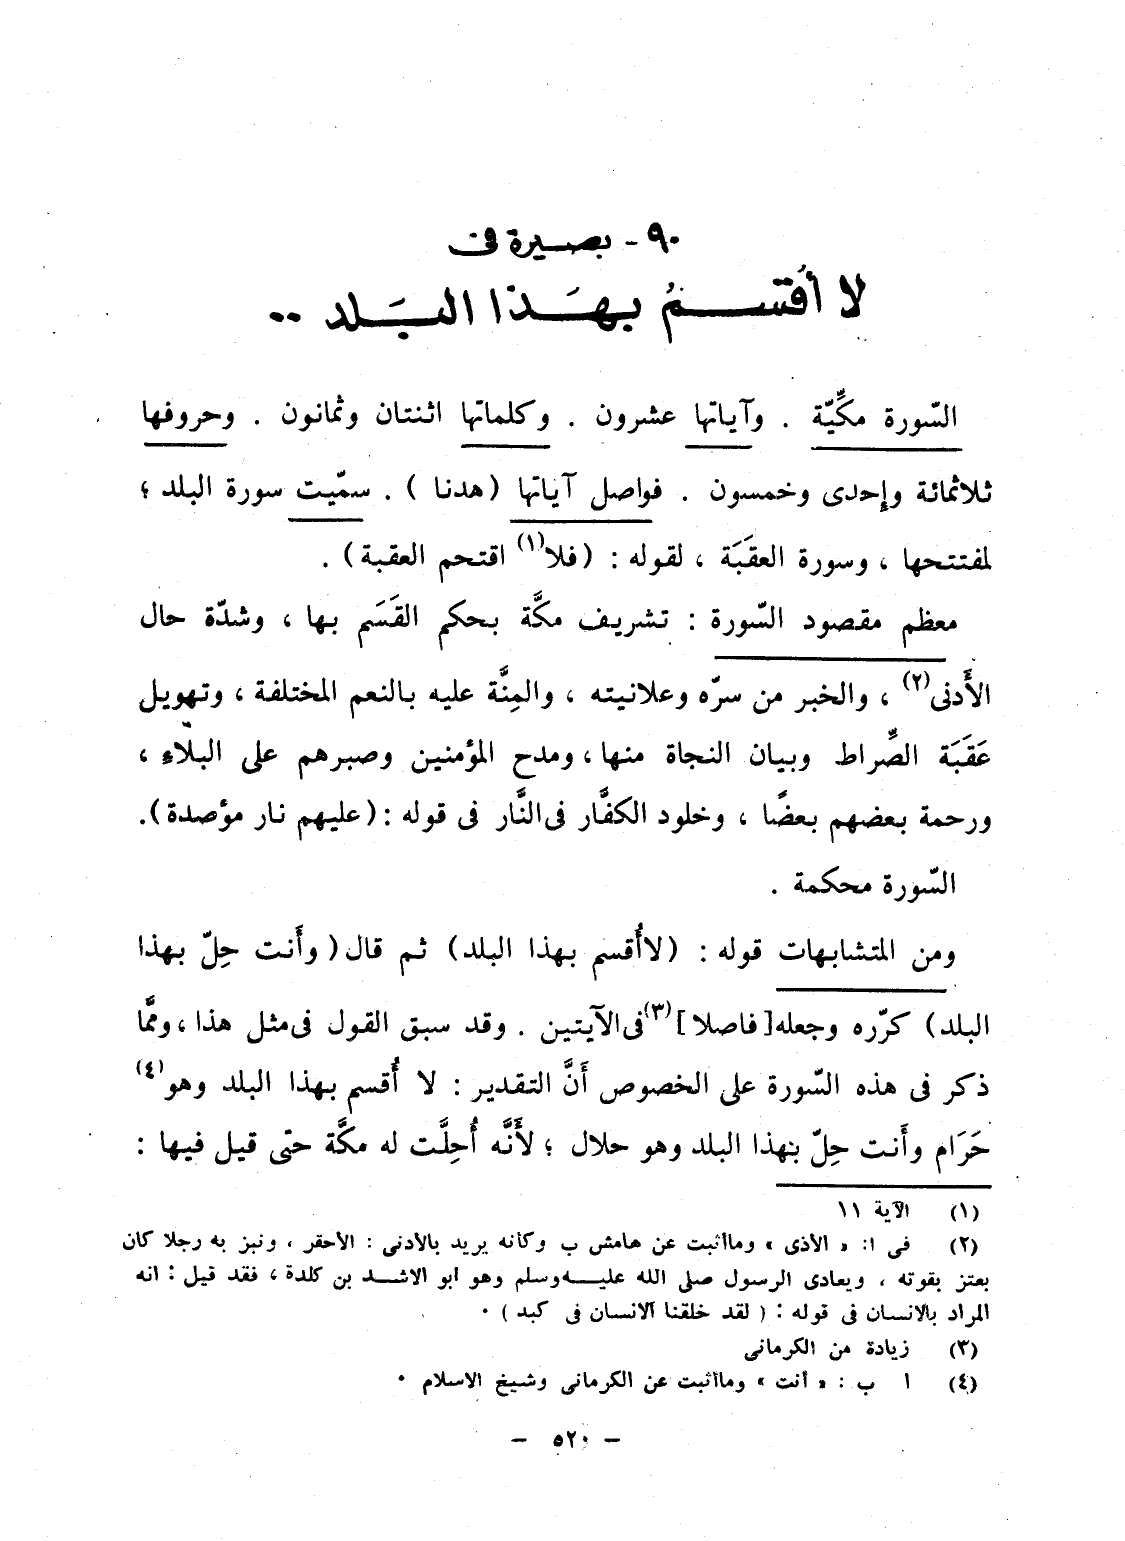 ٩٠ - بصيرة فى
لا أُقسمُ بهَذا البَلد ..
السّورة مكِّيّة . وآياتها عشرون . وكلماتها اثنتان وثمانون . وحروفها
ثلاثمائة وإحدى وخمسون . فواصل آياتها (هدنا ) . سمّيت سورة البلد ؛
لمفتتحها ، وسورة العقَبَة ، لقوله : (فلا(١) اقتحم العقبة) .
معظم مقصود السّورة : تشريف مكَّة بحكم القَسَم بها ، وشدّة حال
الأَدنى(٢) ، والخبر من سرّه وعلانيته ، والمِنَّة عليه بالنعم المختلفة ، وتهويل
عَقَبَة الصِّراط وبيان النجاة منها ، ومدح المؤمنين وصبرهم على البلاءِ ،
ورحمة بعضهم بعضًا ، وخلود الكفَّار فى النَّار فى قوله : (عليهم نار مؤصدة).
السّورة محكمة .
ومن المتشابهات قوله : (لا أُقسم بهذا البلد) ثم قال ( وأَنت حِلّ بهذا
البلد) كرّره وجعله [فاصلا](٣) فى الآيتين . وقد سبق القول فى مثل هذا ، وممَّا
ذكر فى هذه السّورة على الخصوص أَنَّ التقدير : لا أُقسم بهذا البلد وهو(٤)
حَرَام وأَنت حِلّ بهذا البلد وهو حلال ؛ لأَنَّه أُحِلَّت له مكَّة حتى قيل فيها :
(١) الآية ١١
(٢) فى ا: « الأذى » وما أثبت عن هامش ب وكانه يريد بالأدنى : الأحقر ، ونبز به رجلا كان
يعتز بقوته ، ويعادى الرسول صلى الله عليه وسلم وهو ابو الاشد بن كلدة ، فقد قيل : انه
المراد بالانسان فى قوله : ( لقد خلقنا الانسان فى كبد ) .
(٣) زيادة من الكرمانى
(٤) ا ب : « أنت » وما أثبت عن الكرمانى وشيخ الاسلام .
— ٥٢٠ —